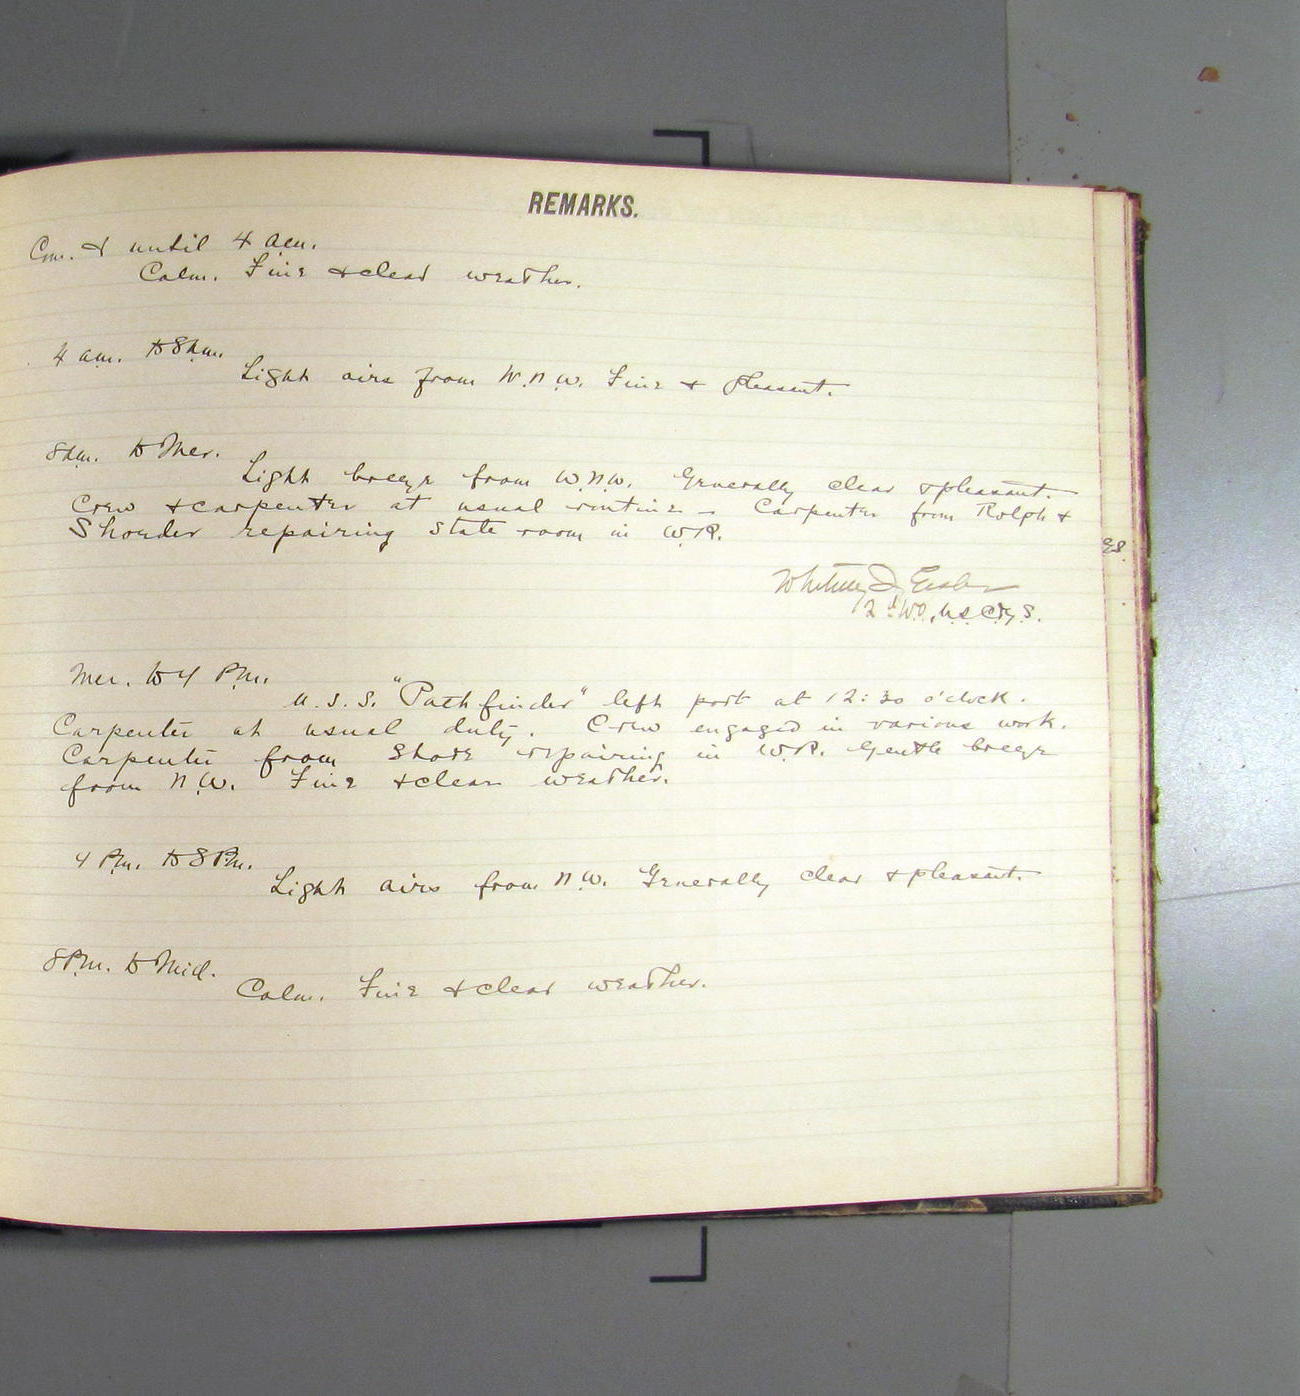 REMARKS.
Com. & until 4 am.
Calm. Fine & clear weather.
4 am. to 8 am.
Light airs from W.N.W. Fine & pleasant.
8 am. to Mer.
Light breeze from W.N.W. Generally clear & pleasant.
Crew & carpenter at usual routine – Carpenter from Rolph &
repairing state room in W.R.
2d W.O., U.S.C.&G.S.
Mer. to 4 P.m.
U.S.S. "Pathfinder" left port at 12:30 o'clock.
Carpenter at usual duty. Crew engaged in various work.
Carpenter from shore repairing in W.R. Gentle breeze
from N.W. Fine & clear weather.
4 P.m. to 8 P.m.
Light airs from N.W. Generally clear & pleasant.
8 P.m. to Mid.
Calm. Fine & clear weather.